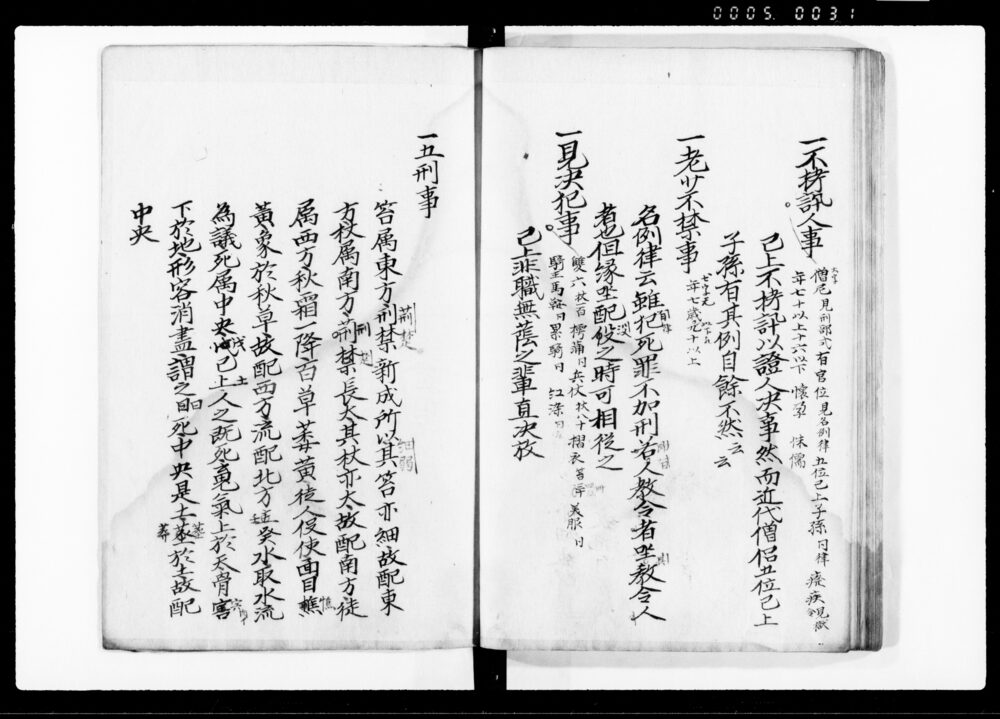 0005 0031
一不拷訊人事
僧尼見刑部式 有官位見名例律 五位已上子孫同律 癈疾見獄令
年七十以上十六以下 懷孕 侏儒
已上不拷訊以證人決事然而近代僧侶五位已上
子孫有其例自餘不然云云
一老少不禁事
年七歳九十以上
名例律云雖犯死罪不加刑若人教令者坐教令人
者也但縁坐配役之時可相從之
一見決犯事
雙六杖百 樗蒲同 兵仗杖八十 摺衣笞 美服同
騎馬 同 累騎同 紅染同
已上非職無蔭之輩直決放
一五刑事
笞属東方刑禁新成所以其笞亦細故配東
方杖属南方荊禁長大其杖亦大故配南方徒
属西方秋霜一降百草萎黄徒人伇使面目憔
黄象於秋草故配西方流配北方壬癸水取水流
為議死属中央戊己土人之既死魂氣上於天骨害
下於地形容消盡謂之曰死中央是土墓於土故配
中央